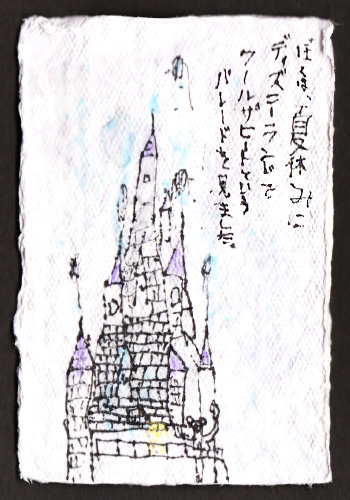 ぼくは、夏休みに
ディズニーランドで
ワールザヒートという
パレードを見ました。